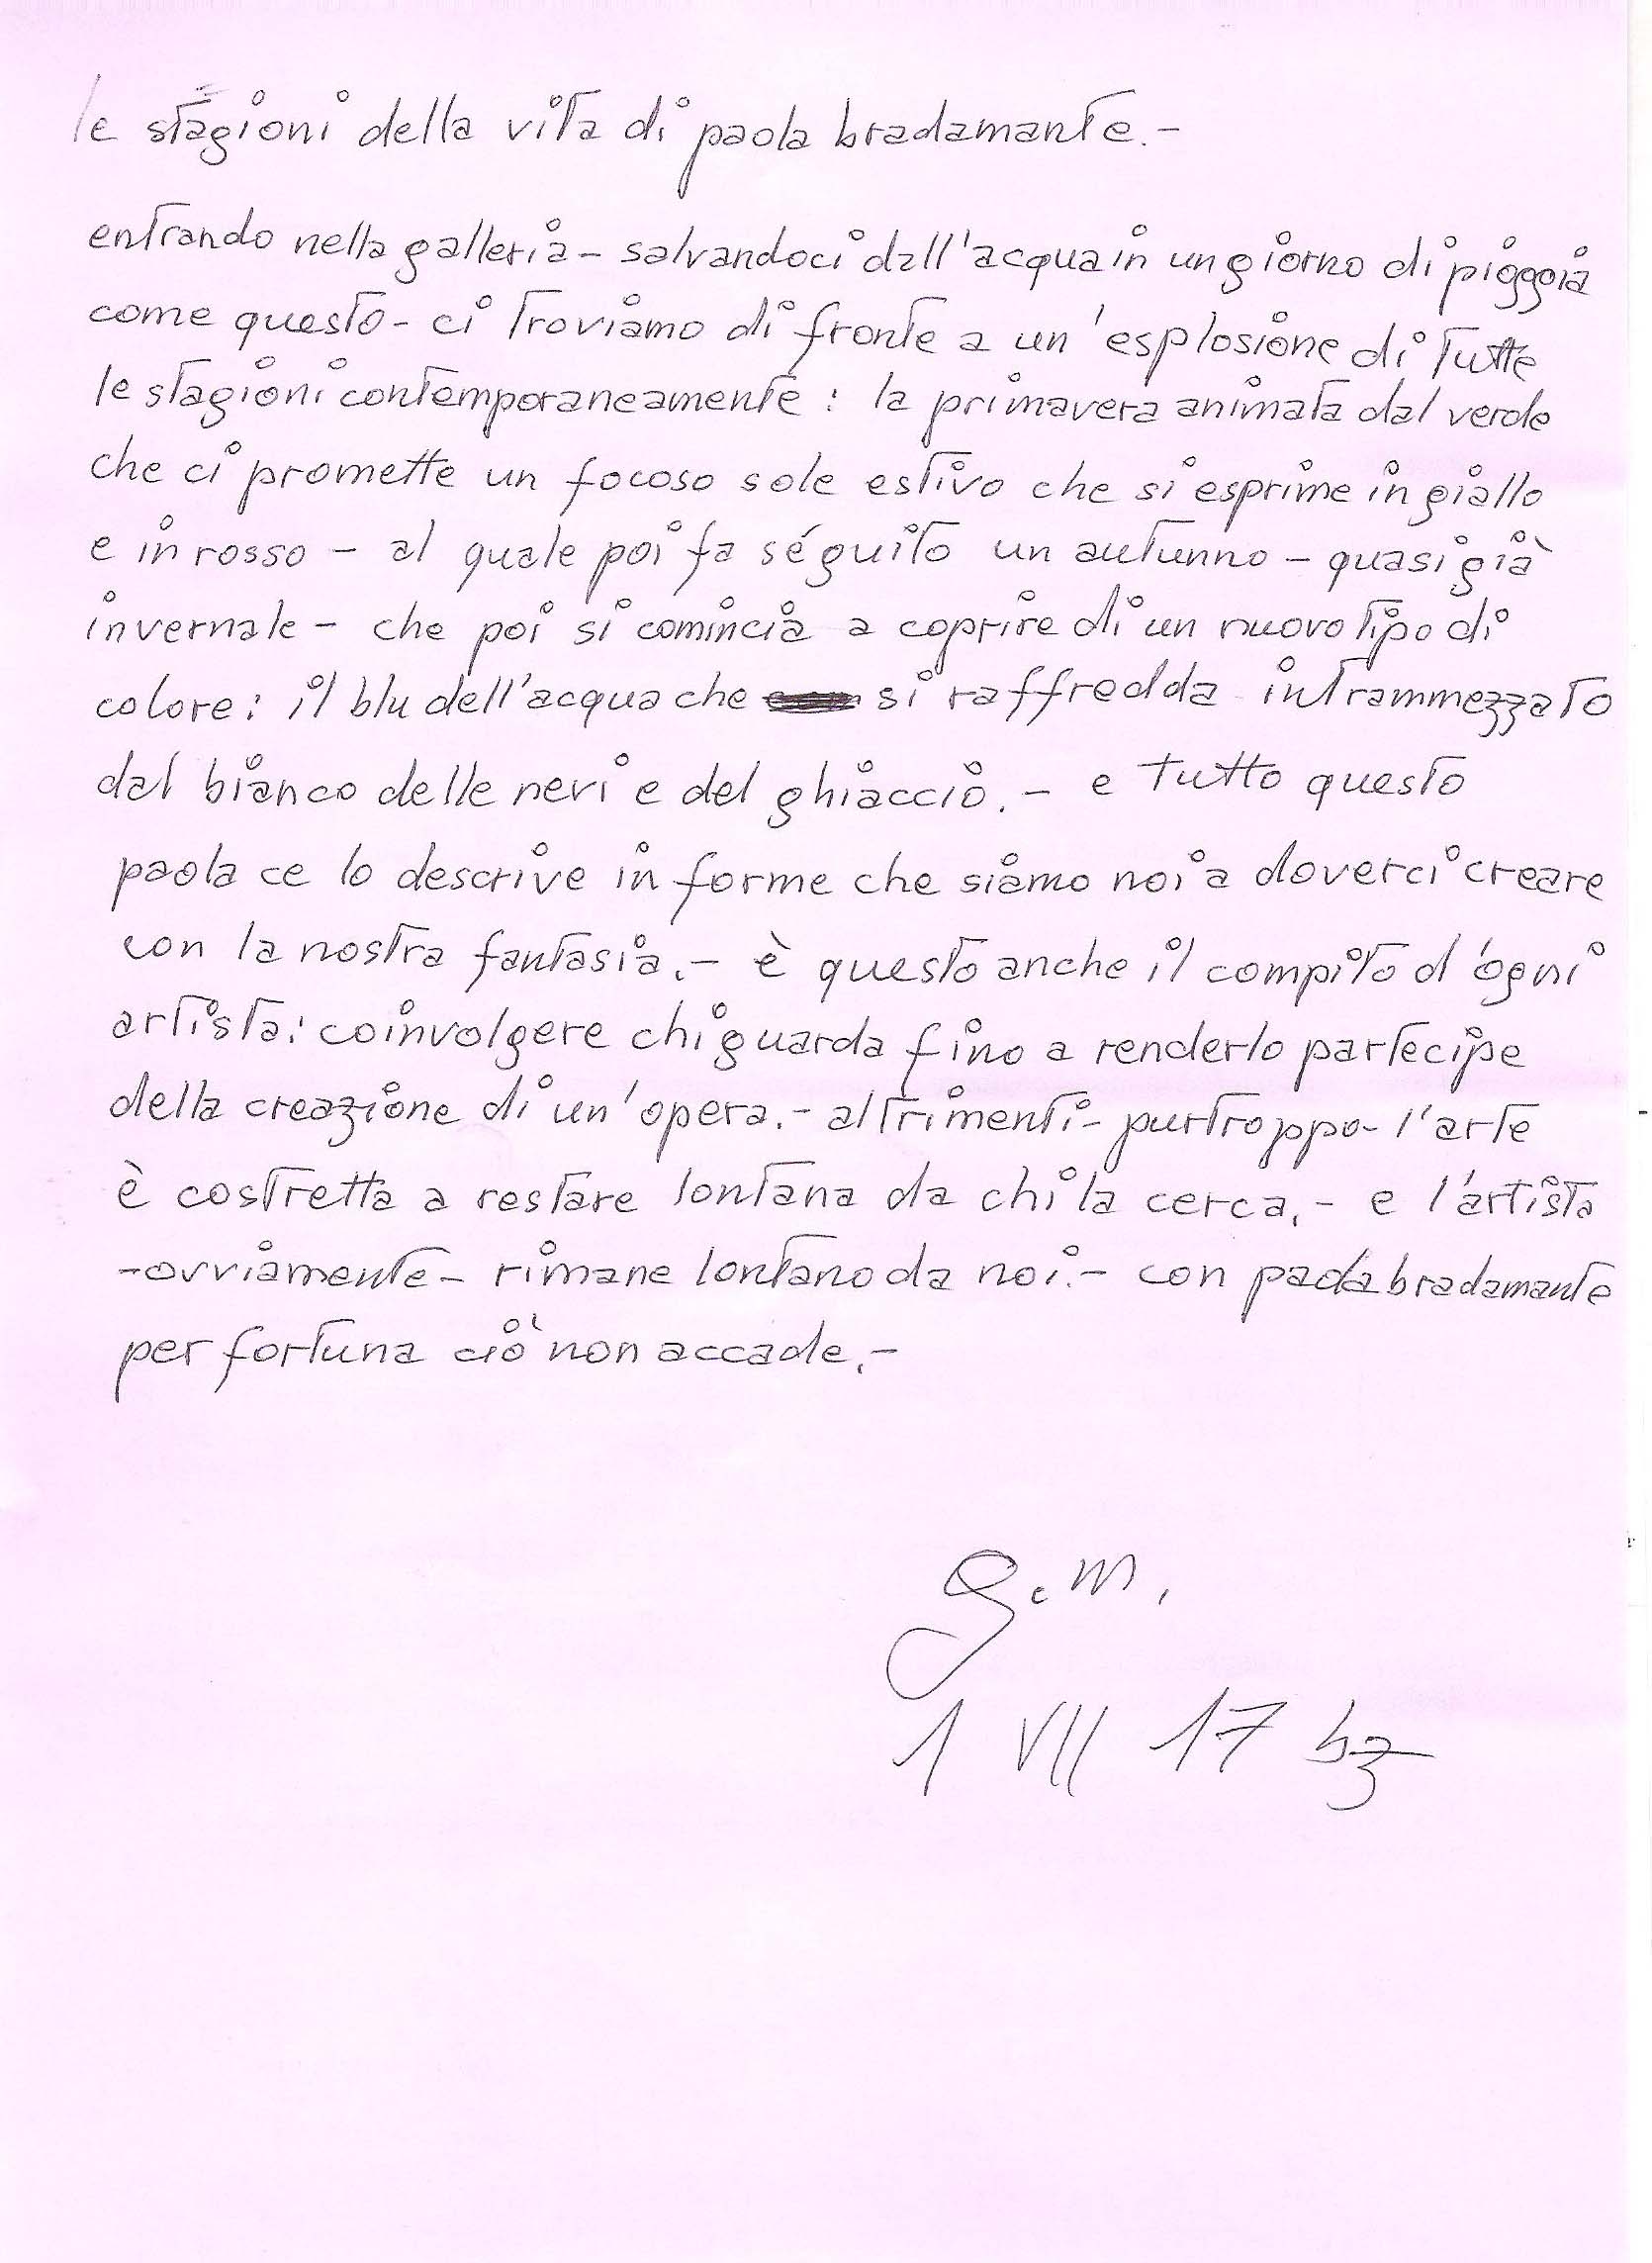 le stagioni della vita di paola bradamante.-
entrando nella galleria - salvandoci dall'acqua in un giorno di pioggia
come questo - ci troviamo di fronte a un'esplosione di tutte
le stagioni contemporaneamente: la primavera animata dal verde
che ci promette un focoso sole estivo che si esprime in giallo
e in rosso - al quale poi fa séguito un autunno - quasi già
invernale - che poi si comincia a coprire di un nuovo tipo di
colore: il blu dell'acqua che si raffredda intrammezzato
dal bianco delle nevi e del ghiaccio.- e tutto questo
paola ce lo descrive in forme che siamo noi a doverci creare
con la nostra fantasia.- è questo anche il compito d'ogni
artista: coinvolgere chi guarda fino a renderlo partecipe
della creazione di un'opera.- altrimenti - purtroppo - l'arte
è costretta a restare lontana da chi la cerca.- e l'artista
- ovviamente - rimane lontano da noi.- con paola bradamante
per fortuna ciò non accade.-
g. m.
1 VII 17 bz